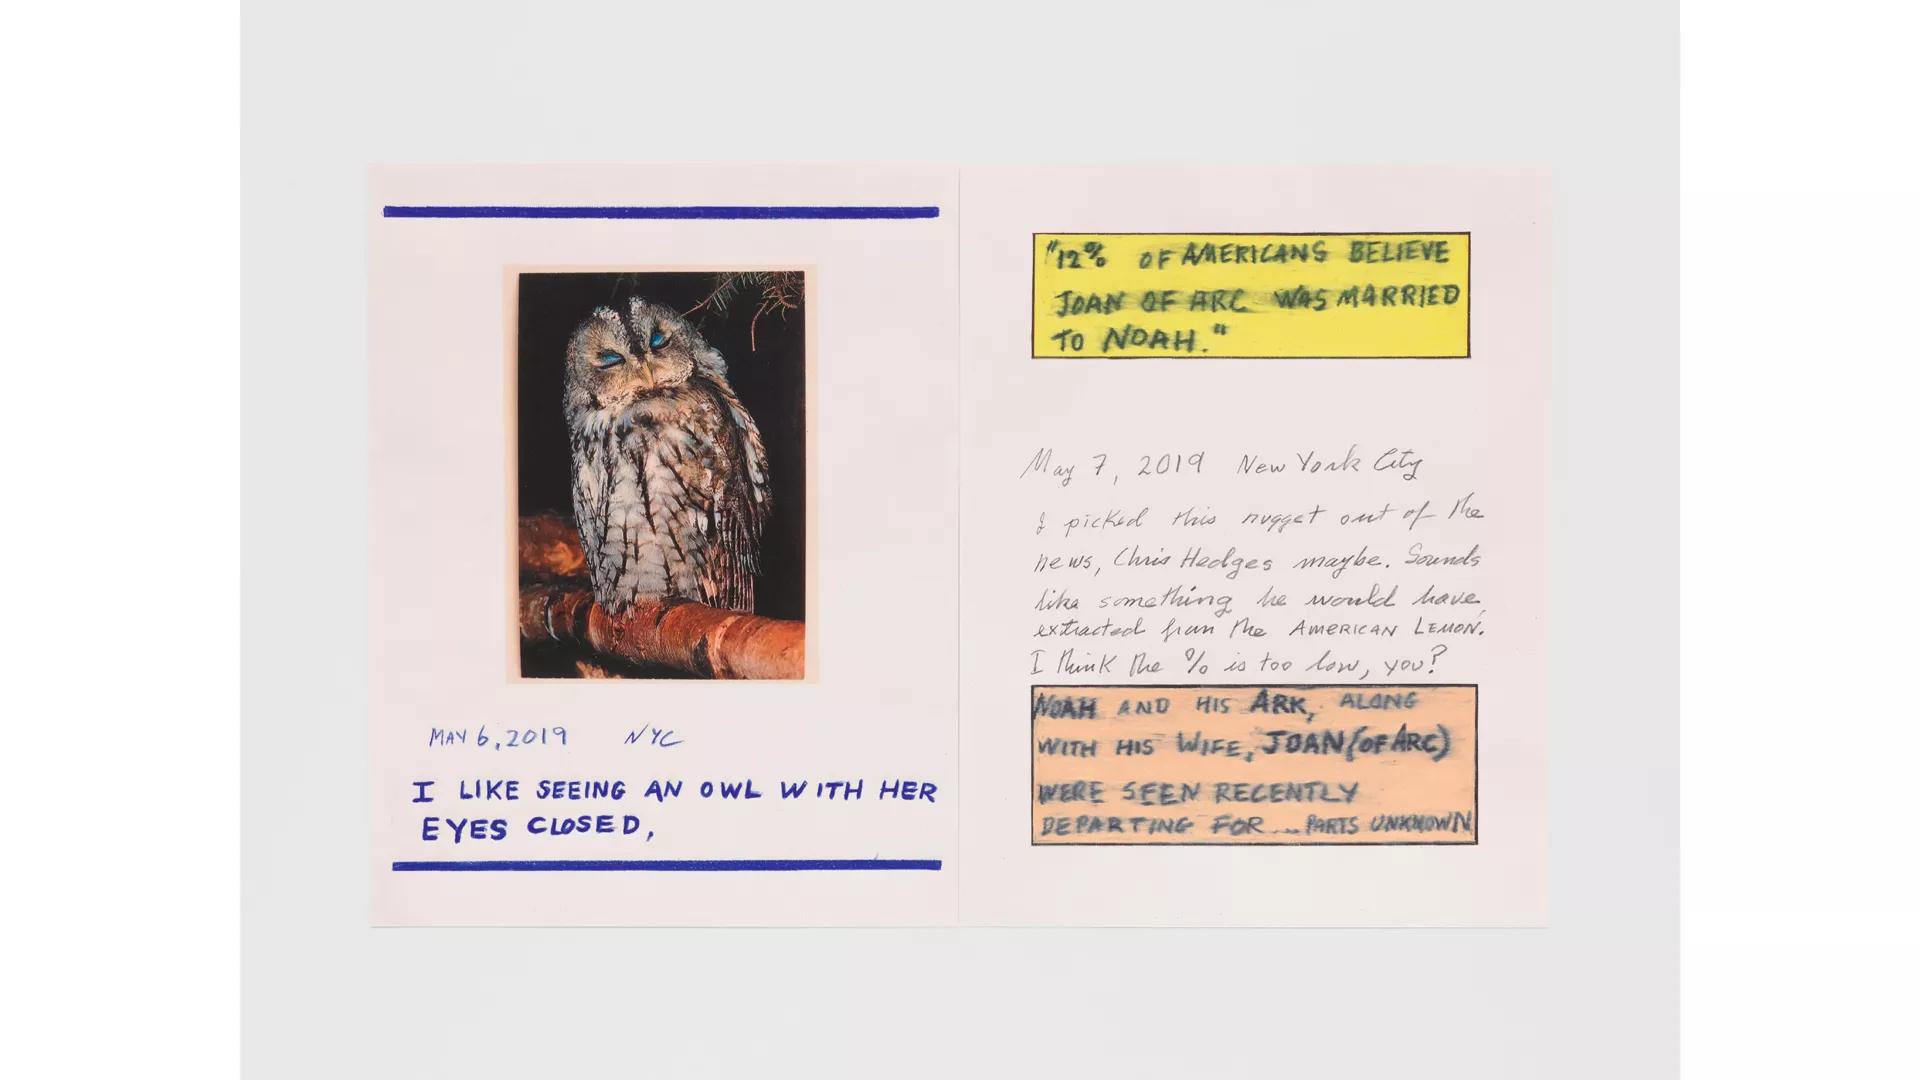 MAY 6, 2019 NYC
I LIKE SEEING AN OWL WITH HER
EYES CLOSED,
"12% OF AMERICANS BELIEVE
JOAN OF ARC WAS MARRIED
TO NOAH."
May 7, 2019 New York City
I picked this nugget out of the
news, Chris Hedges maybe. Sounds
like something he would have
extracted from the AMERICAN LEMON.
I think the % is too low, you?
NOAH AND HIS ARK, ALONG
WITH HIS WIFE, JOAN (OF ARC)
WERE SEEN RECENTLY
DEPARTING FOR... PARTS UNKNOWN